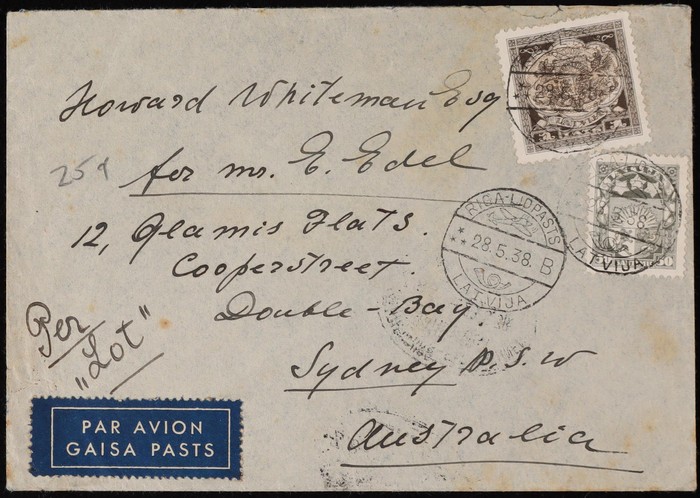 Howard Whiteman Esq
for mr. E. Edel
12, Glamis Flats.
Cooperstreet.
Double-Bay
Sydney N.S.W
Australia
Per
„Lot"
PAR AVION
GAISA PASTS
RIGA-LIDPASTS
28.5.38. B
LATVIJA
LATVIJA